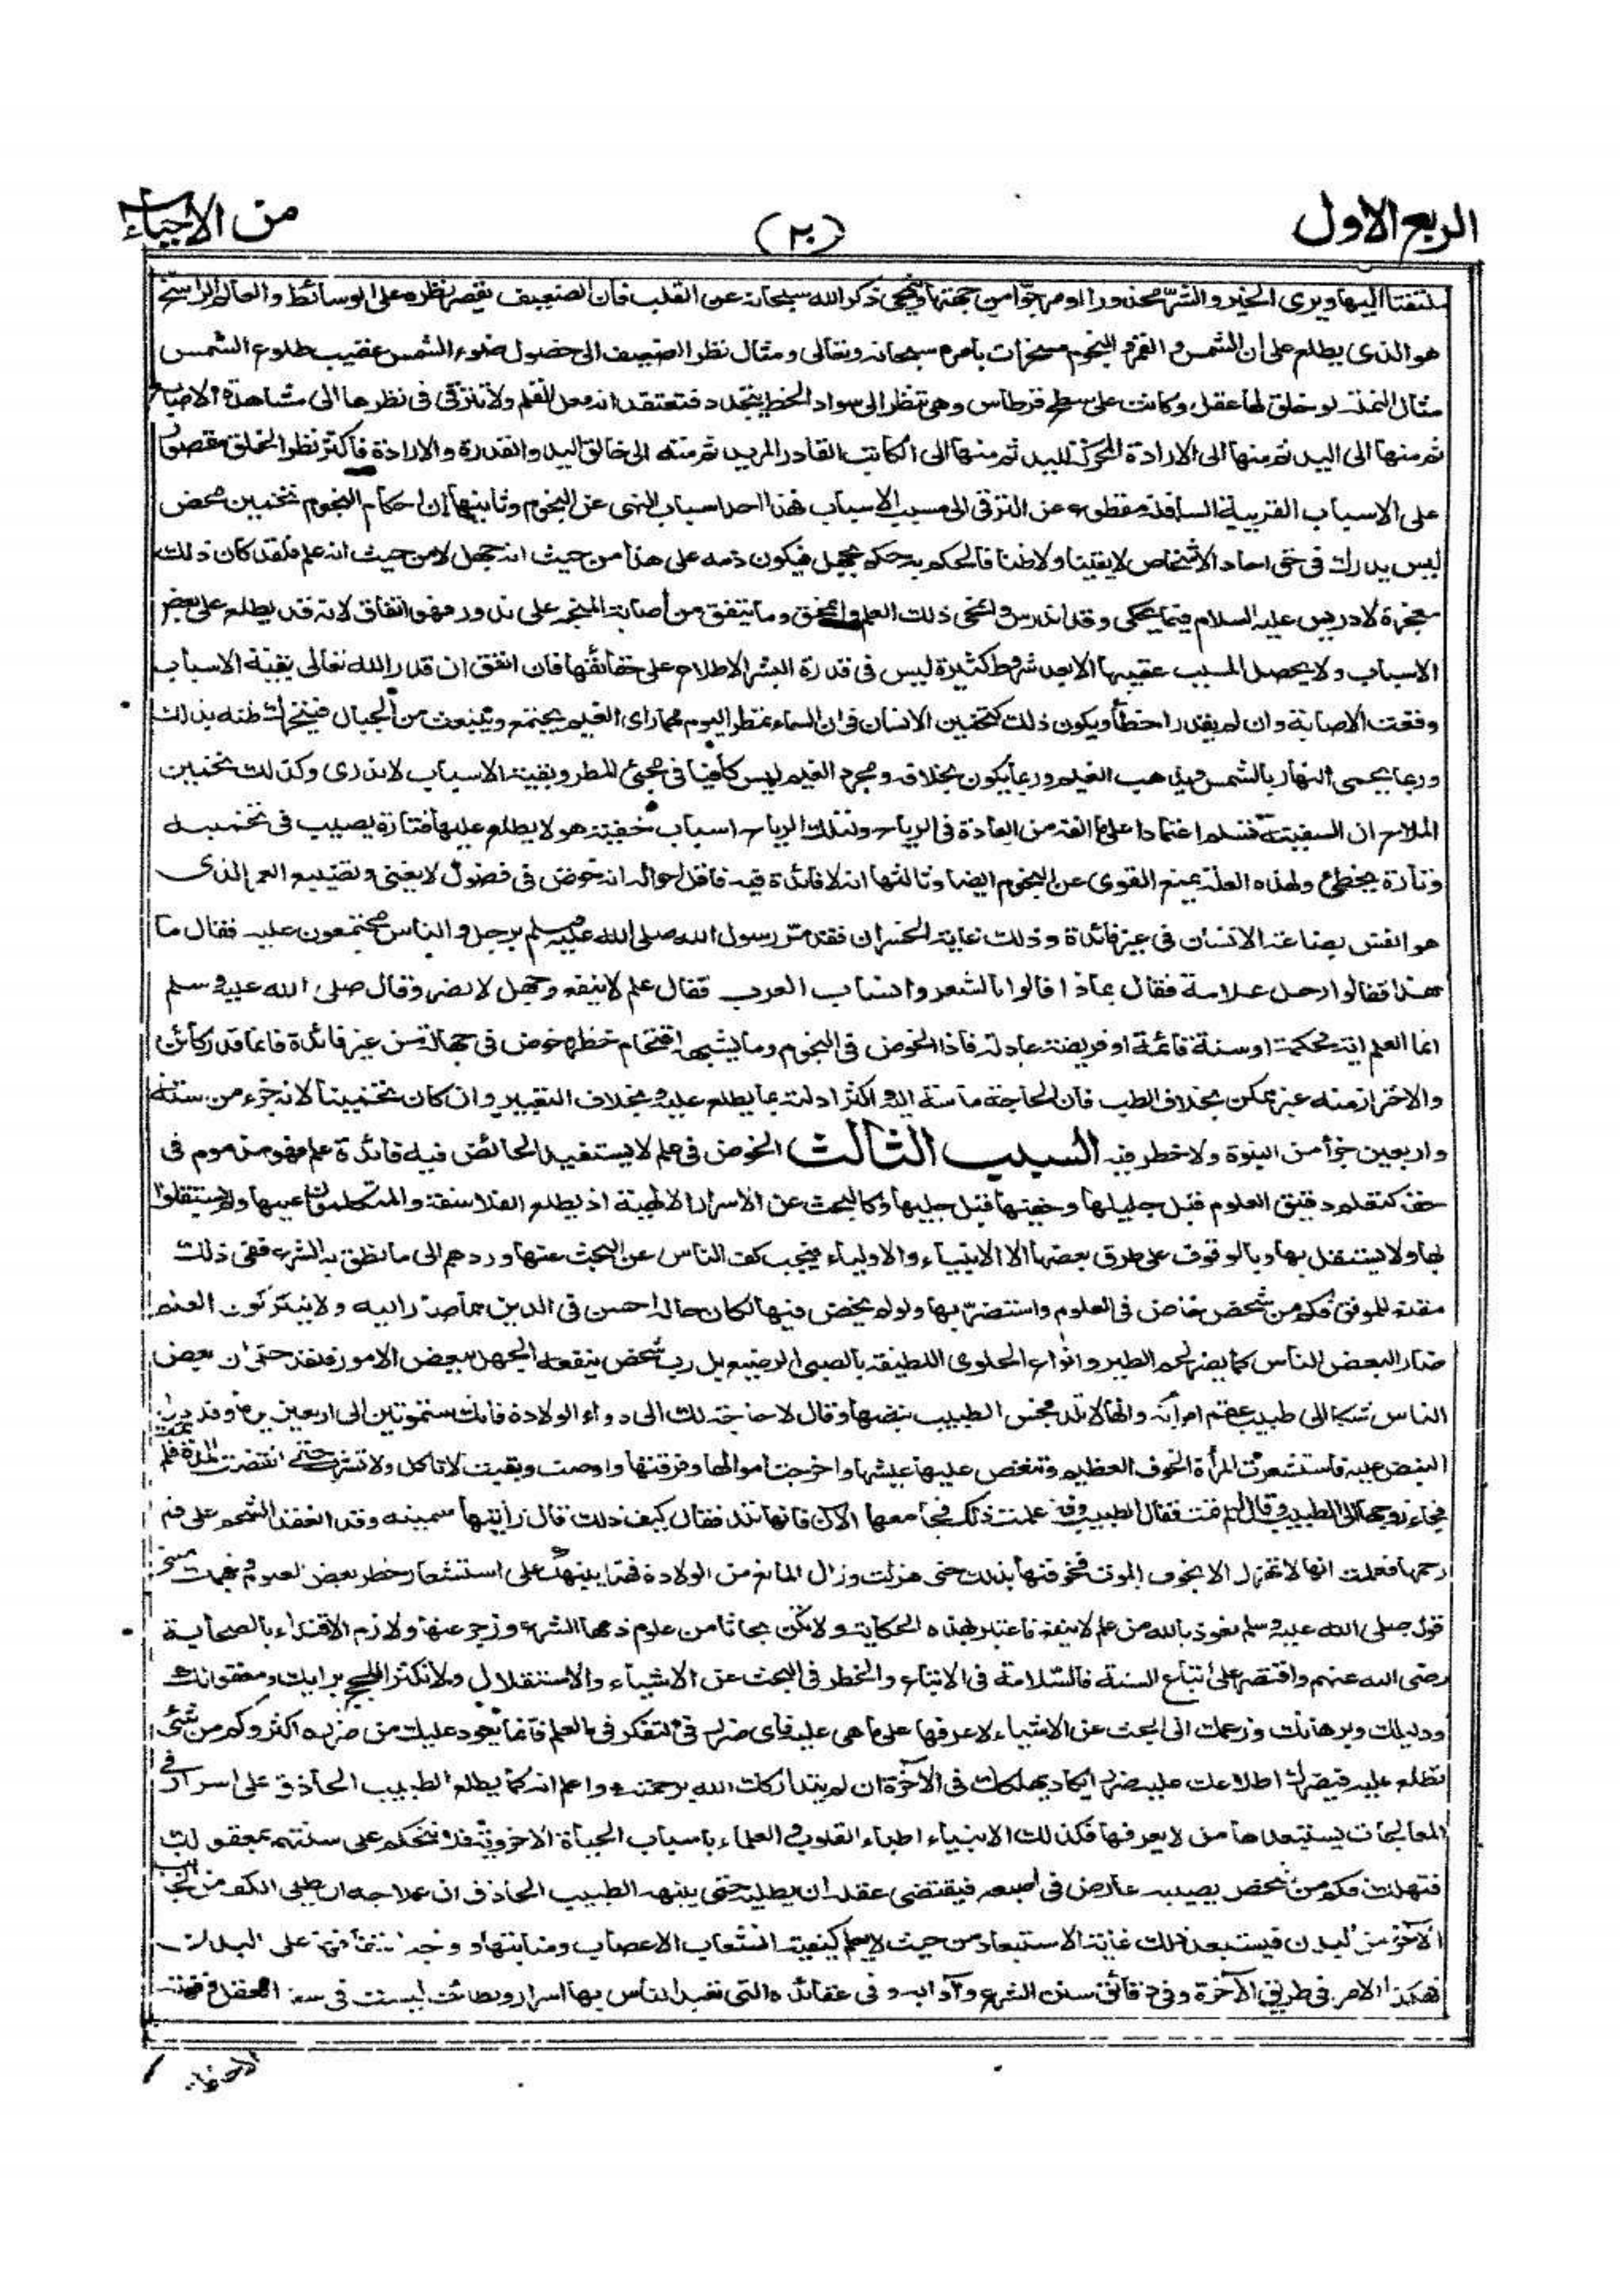 الربع الاول
(٢٠)
من الاحياء
ملتفتا اليها ويرى الخير والشر محذورا او مرجوا من جهتها وينمحى ذكر الله سبحانه عن القلب فان الضعيف يقصر نظره على الوسائط والعالم الراسخ
هو الذى يطلع على ان الشمس و القمر و النجوم مسخرات بامره سبحانه وتعالى ومثال نظر الضعيف الى حصول ضوء الشمس عقيب طلوع الشمس
مثال النملة لو خلق لها عقل وكانت على سطح قرطاس وهى تنظر الى سواد الخط يتجدد فتعتقد انه فعل القلم ولا تترقى فى نظرها الى مشاهدة الاصابع
ثم منها الى اليد ثم منها الى الارادة المحركة لليد ثم منها الى الكاتب القادر المريد ثم منه الى خالق اليد والقدرة والارادة فاكثر نظر الخلق مقصور
على الاسباب القريبة السافلة مقطوع عن الترقى الى مسبب الاسباب فهذا احد اسباب النهى عن النجوم وثانيها ان احكام النجوم تخمين محض
ليس يدرك فى حق احاد الاشخاص لا يقينا ولا ظنا فالحكم به حكم بجهل فيكون ذمه على هذا من حيث انه جهل لا من حيث انه علم فلقد كان ذلك
معجزة لادريس عليه السلام فيما يحكى وقد اندرس وانمحى ذلك العلم وانمحق وما يتفق من أصابة المنجم على ندور فهو اتفاق لانه قد يطلع على بعض
الاسباب ولا يحصل المسبب عقيبها الا بعد شروط كثيرة ليس فى قدرة البشر الاطلاع على حقائقها فان اتفق ان قدر الله تعالى بقية الاسباب
وقعت الاصابة وان لم يقدر اخطأ ويكون ذلك كتخمين الانسان فى ان السماء تمطر اليوم مهما راى الغيم يجتمع وينبعث من الجبال فيتحرك ظنه بذلك
وربما يحمى النهار بالشمس ويذهب الغيم وربما يكون بخلافه ومجرد الغيم ليس كافيا فى مجئ المطر وبقية الاسباب لا تدرى وكذلك تخمين
الملاح ان السفينة تسلم اعتمادا على ما الفه من العادة فى الرياح ولتلك الرياح اسباب خفية هو لا يطلع عليها فتارة يصيب فى تخمينه
وتارة يخطئ ولهذه العلة يمنع القوى عن النجوم ايضا وثالثها انه لا فائدة فيه فاقل احواله انه خوض فى فضول لا يغنى وتضييع العمر الذى
هو انفس بضاعة الانسان فى غير فائدة وذلك غاية الخسران فقد مر رسول الله صلى الله عليه وسلم برجل والناس مجتمعون عليه فقال ما
هذا فقالوا رجل علامة فقال بماذا قالوا بالشعر وانساب العرب فقال علم لا ينفع وجهل لا يضر وقال صلى الله عليه وسلم
انما العلم اية محكمة او سنة قائمة او فريضة عادلة فاذا الخوض فى النجوم وما يشبهه اقتحام خطر وخوض فى جهالة من غير فائدة فانما قدر كائن
والاحتراز منه غير ممكن بخلاف الطب فان الحاجة ماسة اليه واكثر ادلته مما يطلع عليه وبخلاف التعبير وان كان تخمينا لانه جزء من ستة
واربعين جزأ من النبوة ولا خطر فيه السبب الثالث الخوض فى علم لا يستفيد الخائض فيه فائدة علم فهو مذموم فى
حقه كتعلم دقيق العلوم قبل جليلها وخفيها قبل جليها وكالبحث عن الاسرار الالهية اذ يطلع الفلاسفة والمتكلمون اليها ولم يستقلوا
بها ولا يستقل بها وبالوقوف على طرق بعضها الا الانبياء والاولياء فيجب كف الناس عن البحث عنها وردهم الى ما نطق به الشرع ففى ذلك
مقنع للموفق فكم من شخص خاض فى العلوم واستضر بها ولو لم يخض فيها لكان حاله احسن فى الدين مما صار اليه ولا ينكر كون العلم
ضارا لبعض الناس كما يضر لحم الطير وانواع الحلوى اللطيفة بالصبى الرضيع بل رب شخص ينفعه الجهل ببعض الامور فلقد حكى ان بعض
الناس شكا الى طبيب عقم امرأته وانها لا تلد فجس الطبيب نبضها وقال لا حاجة لك الى دواء الولادة فانك ستموتين الى اربعين يوما وقد دل
النبض عليه فاستشعرت المرأة الخوف العظيم وتنغص عليها عيشها واخرجت اموالها وفرقتها واوصت وبقيت لا تاكل ولا تشرب حتى انقضت المدة فلم تمت
فجاء زوجها الى الطبيب وقال لم تمت فقال الطبيب قد علمت ذلك فجامعها الان فانها تلد فقال كيف ذلك قال رأيتها سمينة وقد انعقد الشحم على فم
رحمها فعلمت انها لا تهزل الا بخوف الموت فخوفتها بذلك حتى هزلت وزال المانع من الولادة فهذا ينبهك على استشعار خطر بعض العلوم ويفهمك معنى
قوله صلى الله عليه وسلم نعوذ بالله من علم لا ينفع فاعتبر بهذه الحكاية ولا تكن بحاثا من علوم ذمها الشرع وزجر عنها ولازم الاقتداء بالصحابة
رضى الله عنهم واقتصر على اتباع السنة فالسلامة فى الاتباع والخطر فى البحث عن الاشياء والاستقلال ولا تكثر اللجج برايك ومعقولك
ودليلك وبرهانك وزعمك انى ابحث عن الاشياء لاعرفها على ما هى عليه فاى ضرر فى التفكر فى العلم فانما يعود عليك من ضرره اكثر وكم من شئ
تطلع عليه فيضرك اطلاعك عليه ضررا يكاد يهلكك فى الآخرة ان لم يتداركك الله برحمته واعلم انه كما يطلع الطبيب الحاذق على اسرار فى
المعالجات يستبعدها من لا يعرفها فكذلك الانبياء اطباء القلوب و العلماء باسباب الحياة الاخروية فلا تتحكم على سنتهم بمعقولك
فتهلك فكم من شخص يصيبه عارض فى اصبعه فيقتضى عقله ان يطليه حتى ينبهه الطبيب الحاذق ان علاجه ان يطلى الكف من الجانب
الآخر من البدن فيستبعد ذلك غاية الاستبعاد من حيث لا يعلم كيفية انشعاب الاعصاب ومنابتها ووجه التفافها على البدن
فهكذا الامر فى طريق الآخرة وفى دقائق سنن الشرع وآدابه وفى عقائده التى تعبد الناس بها اسرار ولطائف ليست فى سعة العقل وقوته